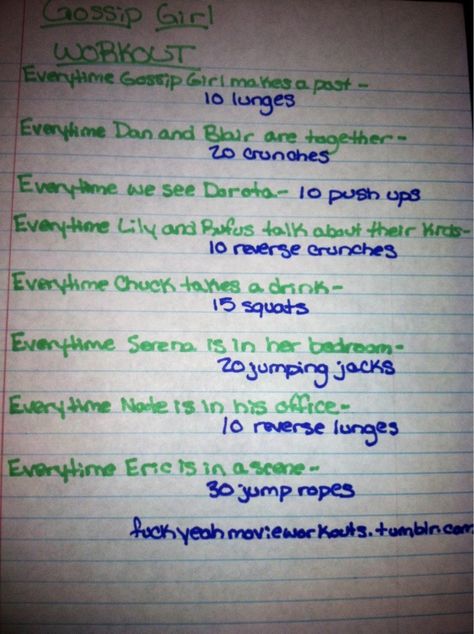 Gossip Girl
WORKOUT
Everytime Gossip Girl makes a post -
10 lunges
Everytime Dan and Blair are together -
20 crunches
Everytime we see Dorota - 10 push ups
Everytime Lily and Rufus talk about their kids -
10 reverse crunches
Everytime Chuck takes a drink -
15 squats
Everytime Serena is in her bedroom -
20 jumping jacks
Everytime Nate is in his office -
10 reverse lunges
Everytime Eric is in a scene -
30 jump ropes
fuckyeahmovieworkouts.tumblr.com